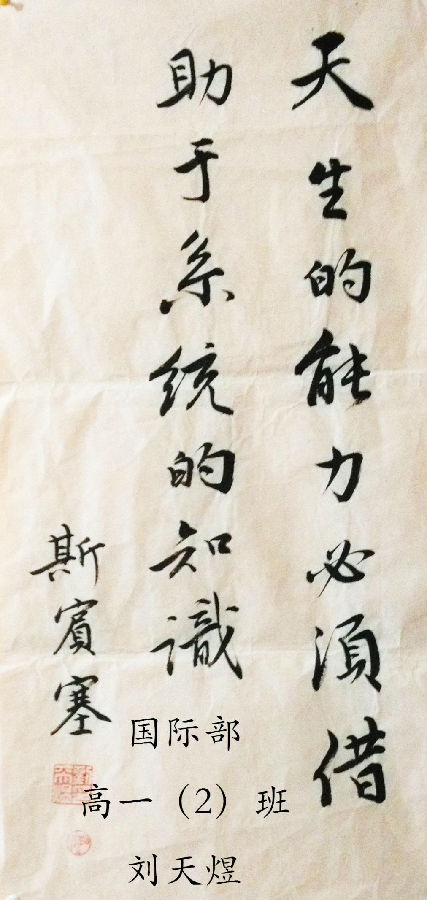 天生的能力必須借
助于系统的知識
斯賓塞
国际部
高一（2）班
刘天煜